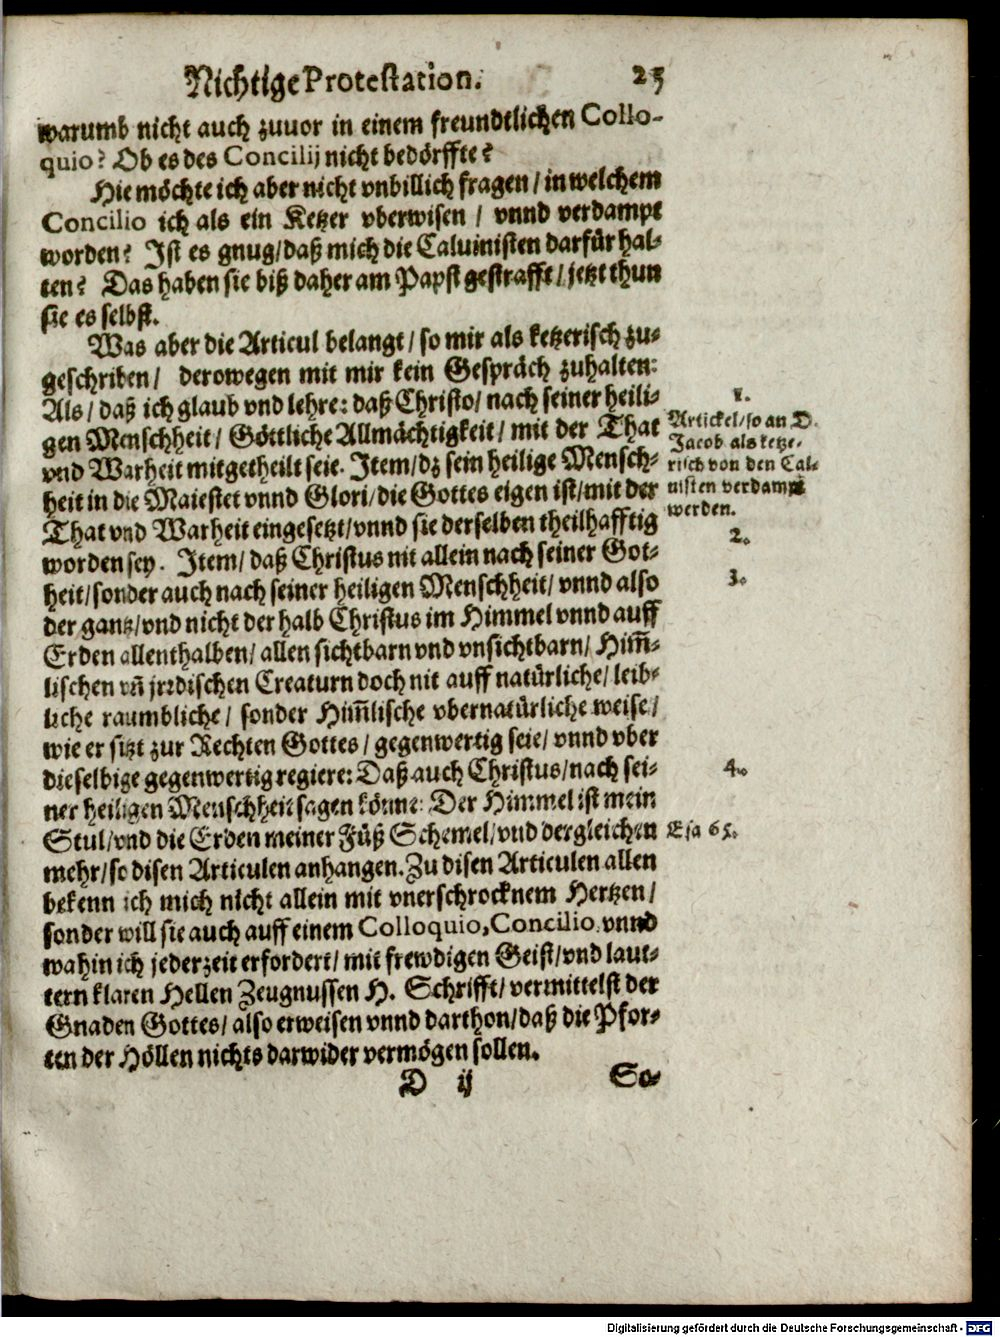 Nichtige Protestation. 25
warumb nicht auch zuuor in einem freundtlichen Collo-
quio? Ob es des Concilij nicht bedörffte?
Hie möchte ich aber nicht vnbillich fragen / in welchem
Concilio ich als ein Ketzer vberwisen / vnnd verdampt
worden? Ist es gnug/daß mich die Caluinisten darfür hal-
ten? Das haben sie biß daher am Papst gestrafft/ jetzt thun
sie es selbst.
Was aber die Articul belangt/ so mir als ketzerisch zu-
geschriben/ derowegen mit mir kein Gespräch zuhalten:
Als/ daß ich glaub vnd lehre: daß Christo/ nach seiner heili-
gen Menschheit/ Göttliche Allmächtigkeit/ mit der That
vnd Warheit mitgetheilt seie. Item/dz sein heilige Mensch-
heit in die Maiestet vnnd Glori/die Gottes eigen ist/mit der
That vnd Warheit eingesetzt/vnnd sie derselben theilhafftig
worden sey. Item/ daß Christus nit allein nach seiner Got-
heit/sonder auch nach seiner heiligen Menschheit/ vnnd also
der gantz/vnd nicht der halb Christus im Himmel vnnd auff
Erden allenthalben/ allen sichtbarn vnd vnsichtbarn/ Him̃-
lischen vñ jrrdischen Creaturn doch nit auff natürliche/ leib-
liche raumbliche/ sonder Him̃lische vbernatürliche weise/
wie er sitzt zur Rechten Gottes/ gegenwertig seie/ vnnd vber
dieselbige gegenwertig regiere: Daß auch Christus/nach sei-
ner heiligen Menschheit sagen könne: Der Himmel ist mein
Stul/vnd die Erden meiner Füß Schemel/vnd dergleichen
mehr/so disen Articulen anhangen. Zu disen Articulen allen
bekenn ich mich nicht allein mit vnerschrocknem Hertzen/
sonder will sie auch auff einem Colloquio, Concilio, vnnd
wahin ich jederzeit erfordert/ mit frewdigen Geist/vnd laut-
tern klaren Hellen Zeugnussen H. Schrifft/ vermittelst der
Gnaden Gottes/ also erweisen vnnd darthon/daß die Pfor-
ten der Höllen nichts darwider vermögen sollen.
D ij So-
1.
Artickel/so an D.
Jacob als ketze-
risch von den Cal-
uisten verdampt
werden.
2.
3.
4.
Esa 65.
Digitalisierung gefördert durch die Deutsche Forschungsgemeinschaft - DFG